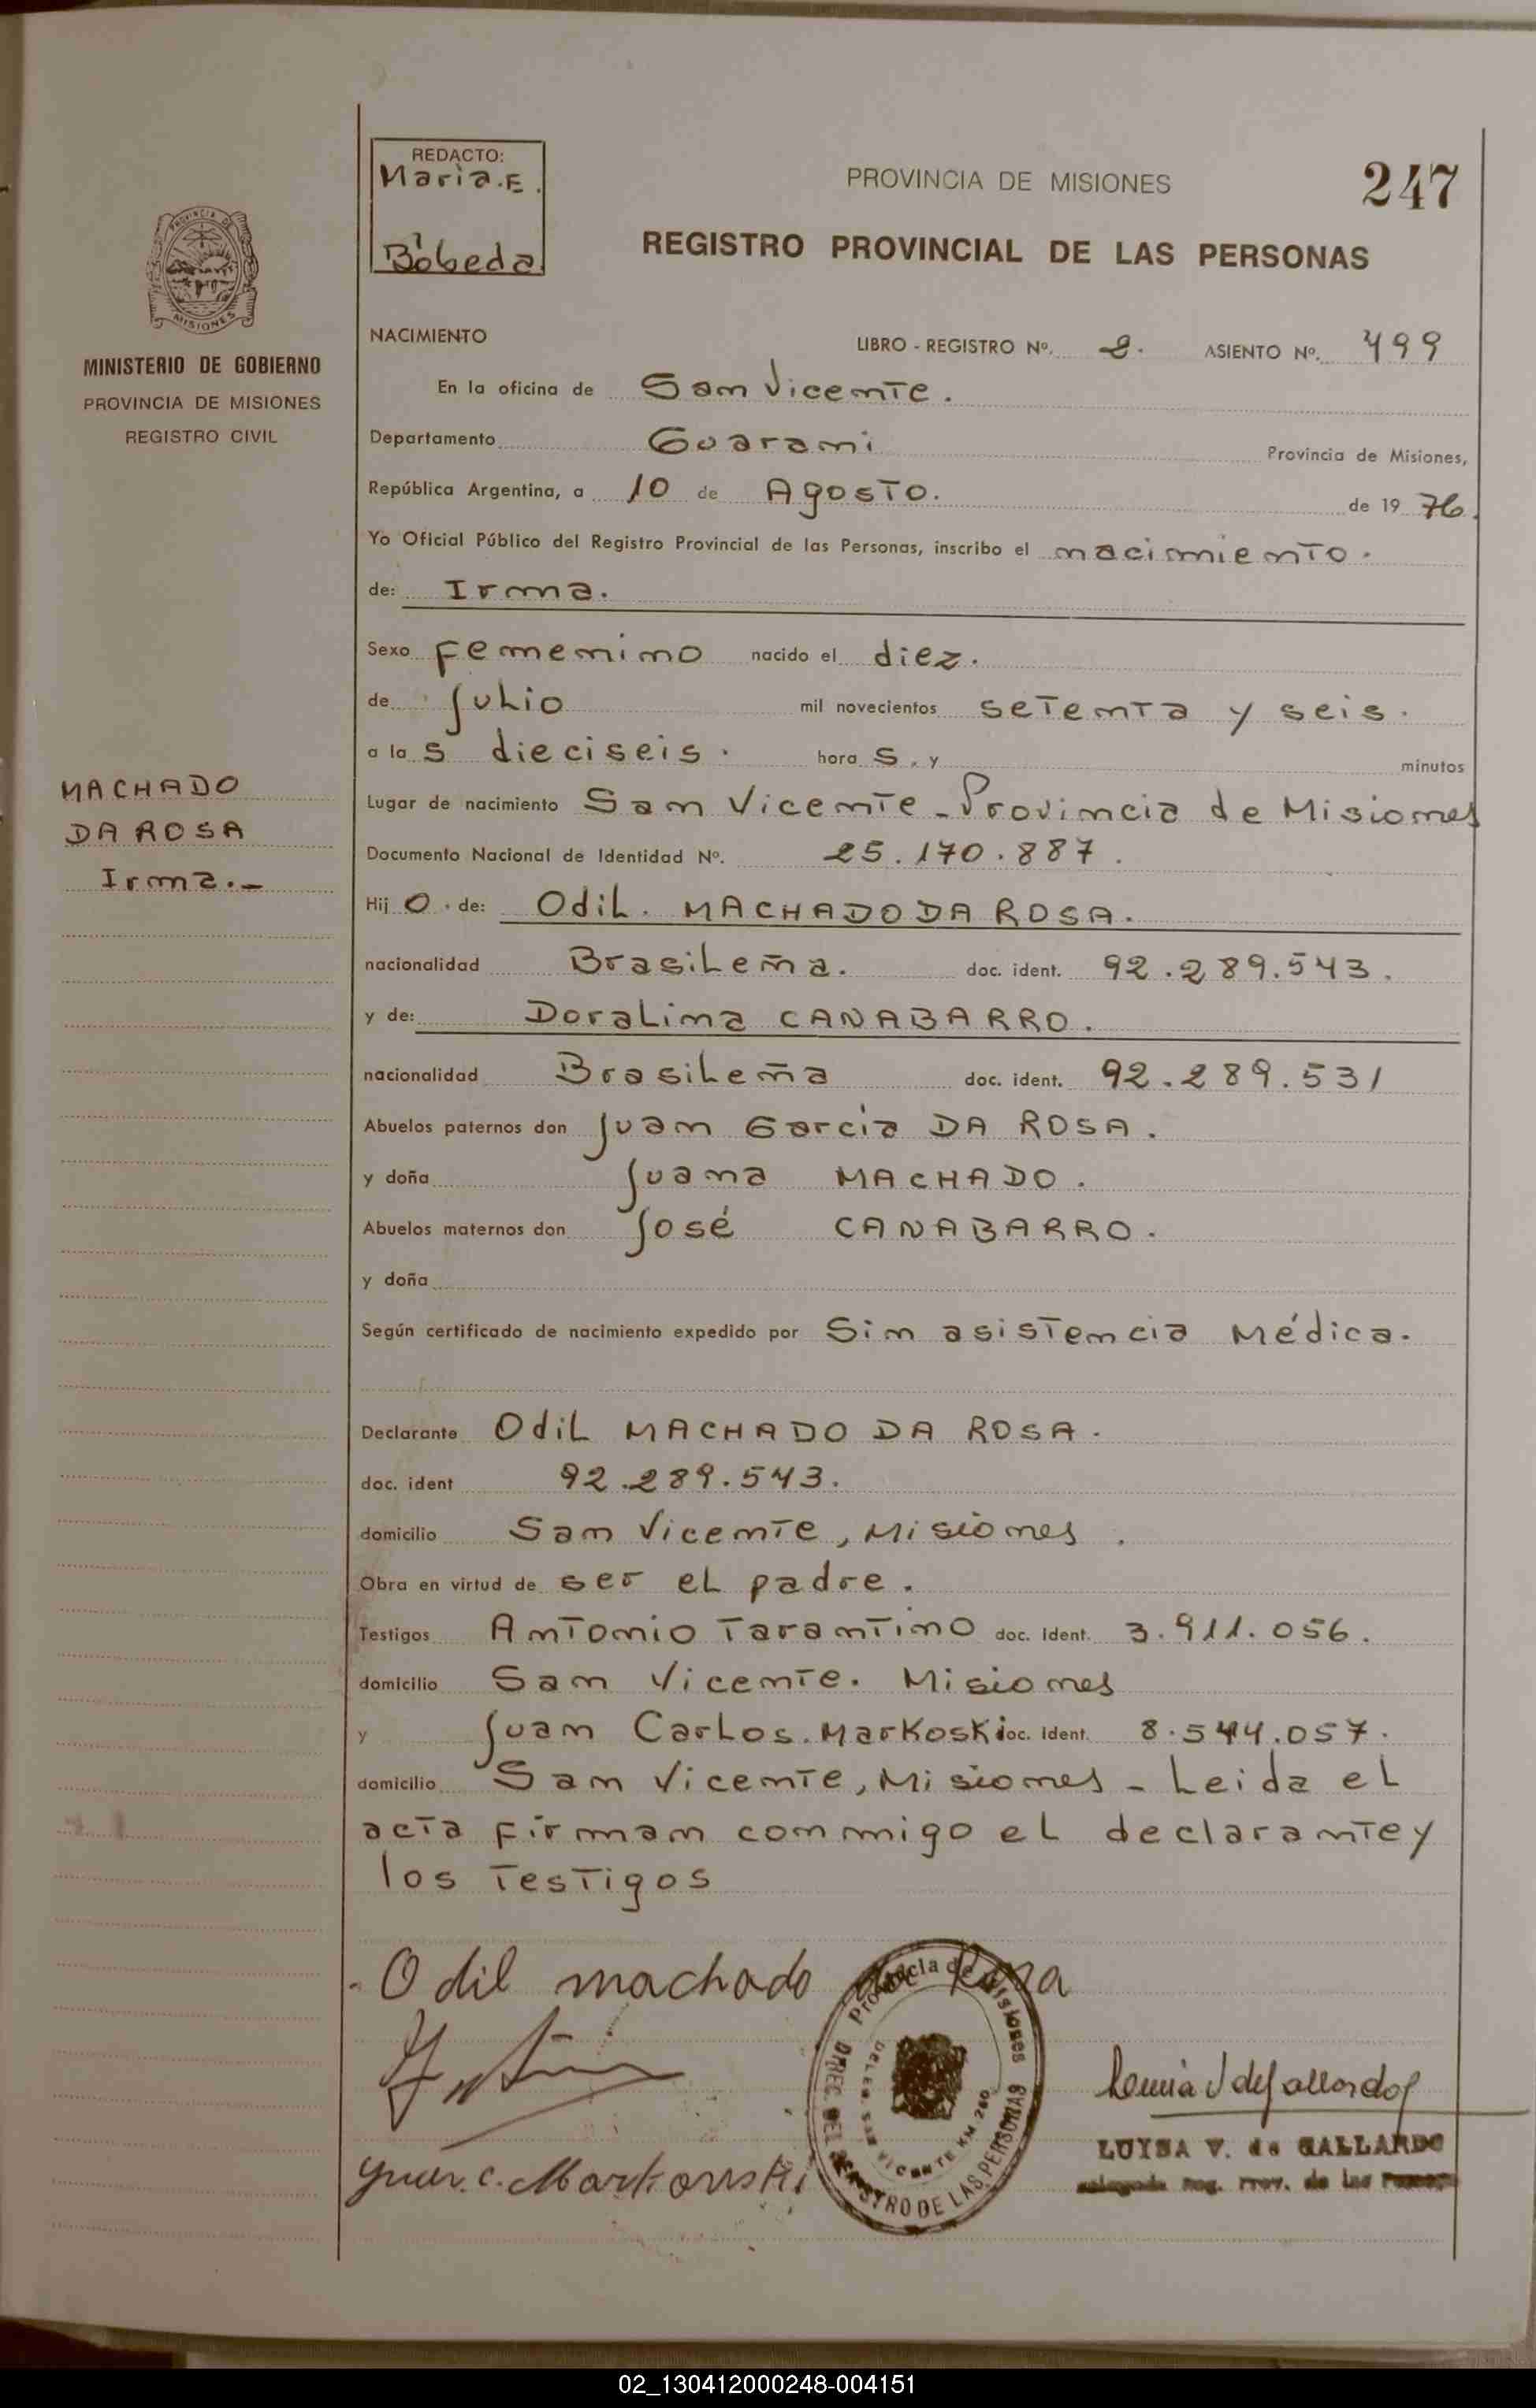 REDACTO:
Maria.E.
Bobeda
PROVINCIA DE MISIONES
247
REGISTRO PROVINCIAL DE LAS PERSONAS
PROVINCIA DE
MISIONES
MINISTERIO DE GOBIERNO
PROVINCIA DE MISIONES
REGISTRO CIVIL
NACIMIENTO LIBRO - REGISTRO Nº. 2. ASIENTO Nº. 499
En la oficina de San Vicente.
Departamento Guarani Provincia de Misiones,
República Argentina, a 10 de Agosto. de 1976.
Yo Oficial Público del Registro Provincial de las Personas, inscribo el nacimiento.
de: Irma.
Sexo Femenino nacido el diez.
de Julio mil novecientos setenta y seis.
a las dieciseis. horas, y minutos
Lugar de nacimiento San Vicente - Provincia de Misiones
Documento Nacional de Identidad Nº. 25.170.887.
Hijo. de: Odil. MACHADO DA ROSA.
nacionalidad Brasileña. doc. ident. 92.289.543.
y de: Doralina CANABARRO.
nacionalidad Brasileña doc. ident. 92.289.531
Abuelos paternos don Juan Garcia DA ROSA.
y doña Juana MACHADO.
Abuelos maternos don José CANABARRO.
y doña
Según certificado de nacimiento expedido por Sin asistencia Médica.
Declarante Odil MACHADO DA ROSA.
doc. ident 92.289.543.
domicilio San Vicente, Misiones.
Obra en virtud de ser el padre.
Testigos Antonio Tarantino doc. ident. 3.911.056.
domicilio San Vicente. Misiones
y Juan Carlos. Markoski doc. ident. 8.544.057.
domicilio San Vicente, Misiones - Leida el
acta firman conmigo el declarante y
los testigos
MACHADO
DA ROSA
Irma.-
Odil machado da Rosa
Provincia de Misiones
DIREC. DEL REGISTRO DE LAS PERSONAS
DELEG. SAN VICENTE KM 260
Juan. C. Markowski
LUYSA V. de GALLARDO
Delegada Reg. Prov. de las Personas
02_130412000248-004151